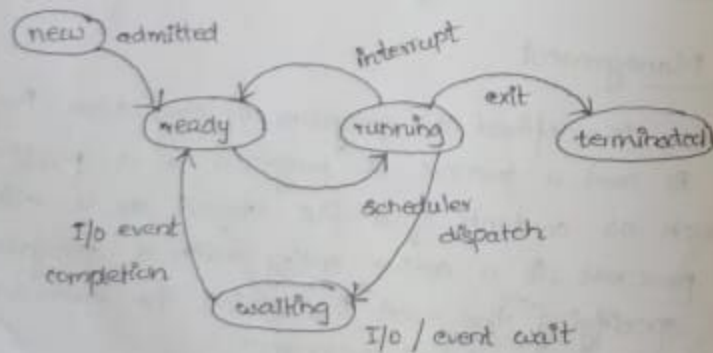 new
admitted
interrupt
exit
ready
running
terminated
scheduler
dispatch
I/o event
completion
waiting
I/o / event wait